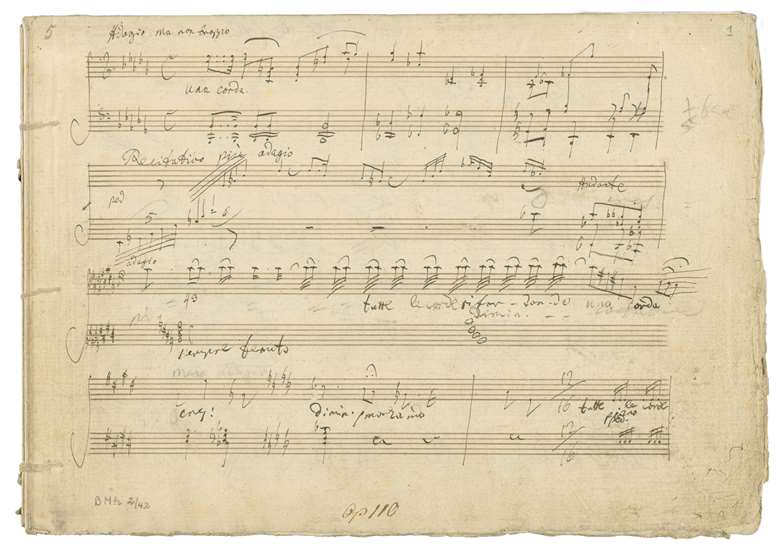 5 Adagio ma non troppo 1
una corda
Recitativo più adagio
ped Andante
5
adagio
43 tutte le corde
dimin. una corda
sempre tenuto
12
16
cresc: dimin. smorzando tutte le corde
12
16
BMh 2/42
op 110